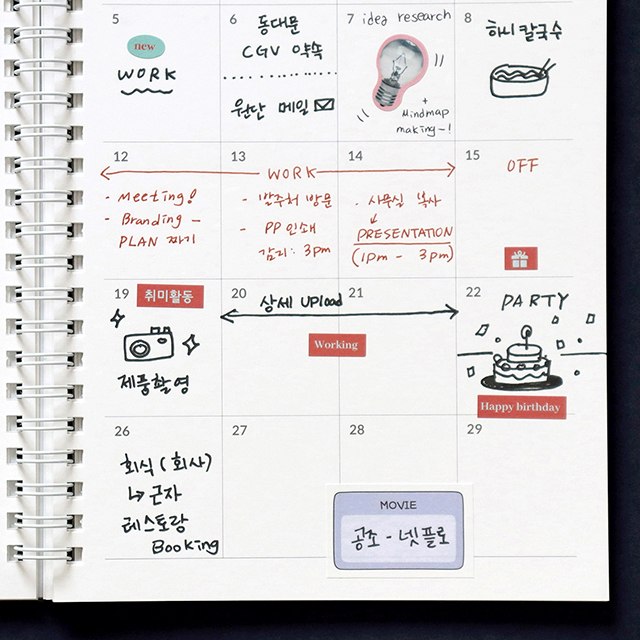 5
new
WORK
6
동대문
CGV 약속
원단 메일
7
idea research
+
Mindmap
making~!
8
하니칼국수
12
13
14
WORK
· Meeting!
· Branding -
PLAN 짜기
- 발주처 방문
- PP 인쇄
감리: 3pm
· 사무실 복사
PRESENTATION
(1pm - 3pm)
15
OFF
19
취미활동
제품촬영
20
21
상세 upload
Working
22
PARTY
Happy birthday
26
회식 (회사)
↳ 근자
레스토랑
Booking
27
28
29
MOVIE
공조 - 넷플로